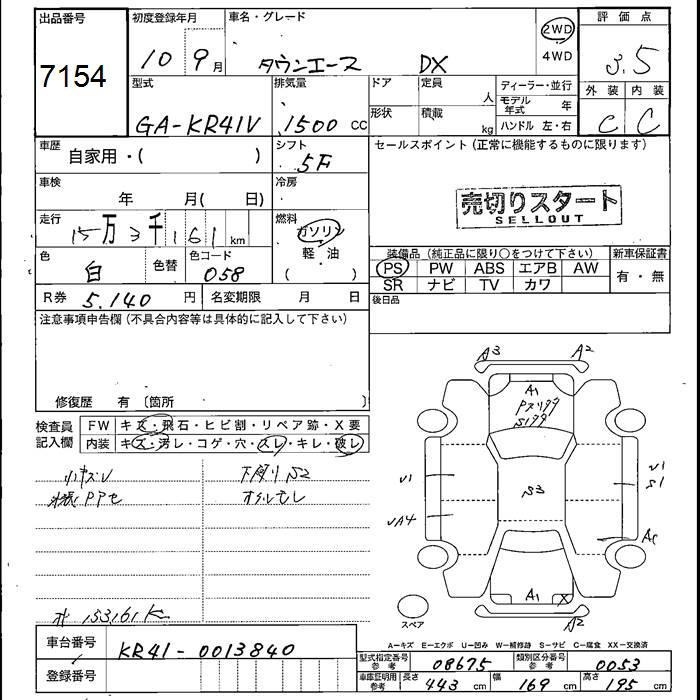 出品番号 初度登録年月 車名・グレード 評価点
7154 10 9月 タウンエース DX 2WD 4WD 3.5
型式 排気量 ドア 定員 人 ディーラー・並行 外装 内装
GA-KR41V 1500 cc 形状 積載 kg モデル年式 年 C C
ハンドル 左・右
車歴 自家用・( ) シフト 5F セールスポイント(正常に機能するものに限ります)
車検 年 月( 日) 冷房
売切りスタート
SELLOUT
走行 15万3千161km 燃料 ガソリン
軽・油
( )
色 白 色替 色コード 058
装備品(純正品に限り○をつけて下さい) 新車保証書
PS PW ABS エアB AW 有・無
SR ナビ TV カワ
R券 5,140円 名変期限 月 日 後日品
注意事項申告欄(不具合内容等は具体的に記入して下さい)
修復歴 有〔箇所 〕
検査員記入欄 FW キズ・飛石・ヒビ割・リペア跡・X要
内装 キズ・汚レ・コゲ・穴・スレ・キレ・破レ
小キズV 下廻りS2
A3 A2
A1
S3
V1 V1
S1
VA4
A1 X
A2
スペア
153161K
A−キズ E−エクボ U−凹み W−補修跡 S−サビ C−腐食 XX−交換済
車台番号 KR41-0013840
型式指定番号 参考 08675 類別区分番号 参考 0053
登録番号
車庫証明用 参考 長さ 443cm 幅 169cm 高さ 195cm